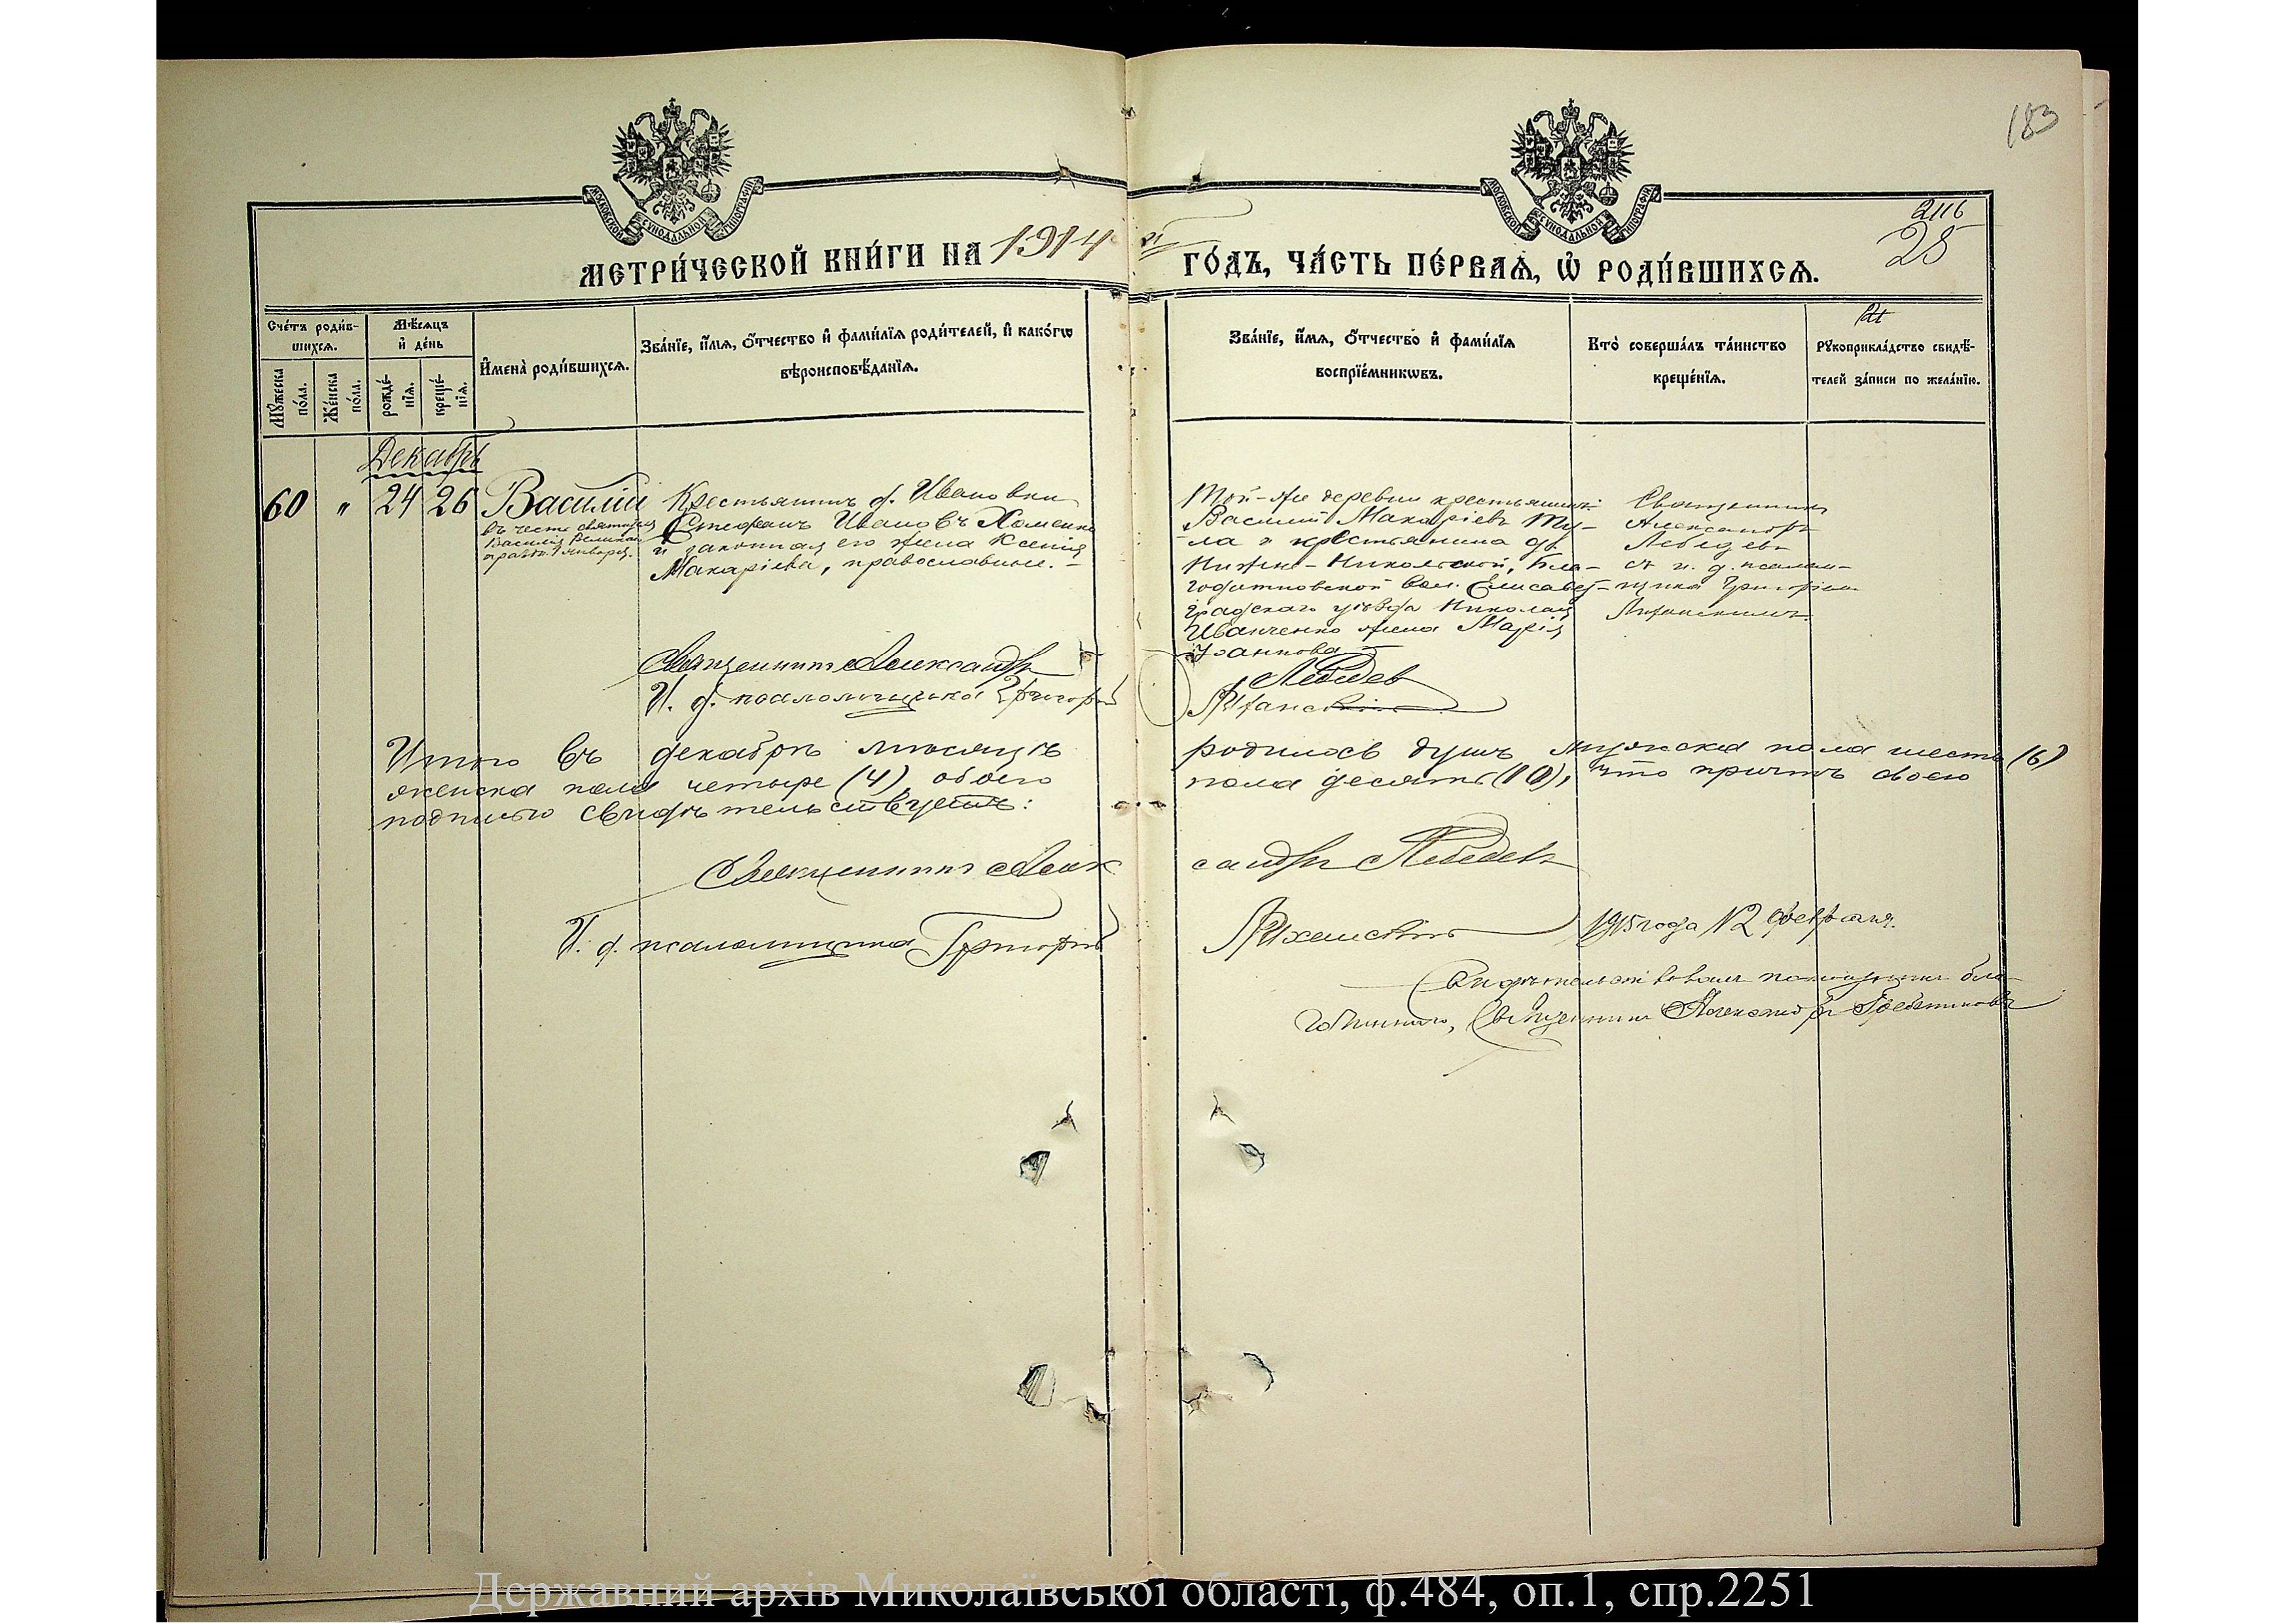 183
МОСКОВСКОЙ СѴНОДАЛЬНОЙ ТИПОГРАФІИ
МОСКОВСКОЙ СѴНОДАЛЬНОЙ ТИПОГРАФІИ
2116
25
МЕТРИ́ЧЕСКОЙ КНИ́ГИ НА 1914 й ГО́ДЪ, ЧА́СТЬ ПЕ́РВАѦ, Ѡ РОДИ́ВШИХСѦ.
Сче́тъ роди́в-
шихсѧ.
Мꙋ́жеска по́ла.
Же́нска по́ла.
Мѣ́сѧцъ
и҆ де́нь
рожде́-
нїѧ.
креще́-
нїѧ.
И҆мена̀ роди́вшихсѧ.
Зва́нїе, и҆́мѧ, ѻ҆́тчество и҆ фами́лїѧ роди́телей, и҆ како́гѡ
вѣроисповѣ́данїѧ.
Зва́нїе, и҆́мѧ, ѻ҆́тчество и҆ фами́лїѧ
воспрїе́мникѡвъ.
Кто̀ соверша́лъ та́инство
креще́нїѧ.
Рꙋкоприкла́дство свидѣ́-
телей за́писи по жела́нїю.
Декабрь
60 " 24 26 Василій
въ честь святителя
Василія Великаго,
праздн. 1 января.
Крестьянинъ д. Ивановки
Стефанъ Ивановъ Хоменко
и законная его жена Ксенія
Макаріева, православные.
Той-же деревни крестьянинъ
Василій Макаріевъ Ту-
ла и крестьянина д.
Нижне-Никольской, Бла-
годатновской вол. Елисавет-
градскаго уѣзда Николая
Иванченко жена Марія
Іоаннова
Священникъ
Александръ
Лебедевъ
съ и. д. псалом-
щика Григоріемъ
Священникъ Александръ Лебедев
И. д. псаломщика Григорій
Итого въ декабрѣ мѣсяцѣ родилось душъ мужска пола шесть (6)
женска пола четыре (4), обоего пола десять (10), что причтъ своею
подписью свидѣтельствуетъ:
Священникъ Александръ Лебедевъ
И. д. псаломщика Григорій
1915 года 12 февраля.
Свидѣтельствовалъ помощникъ бла-
гочиннаго, Священникъ Александръ Гребенниковъ
Державний архів Миколаївської області, ф.484, оп.1, спр.2251